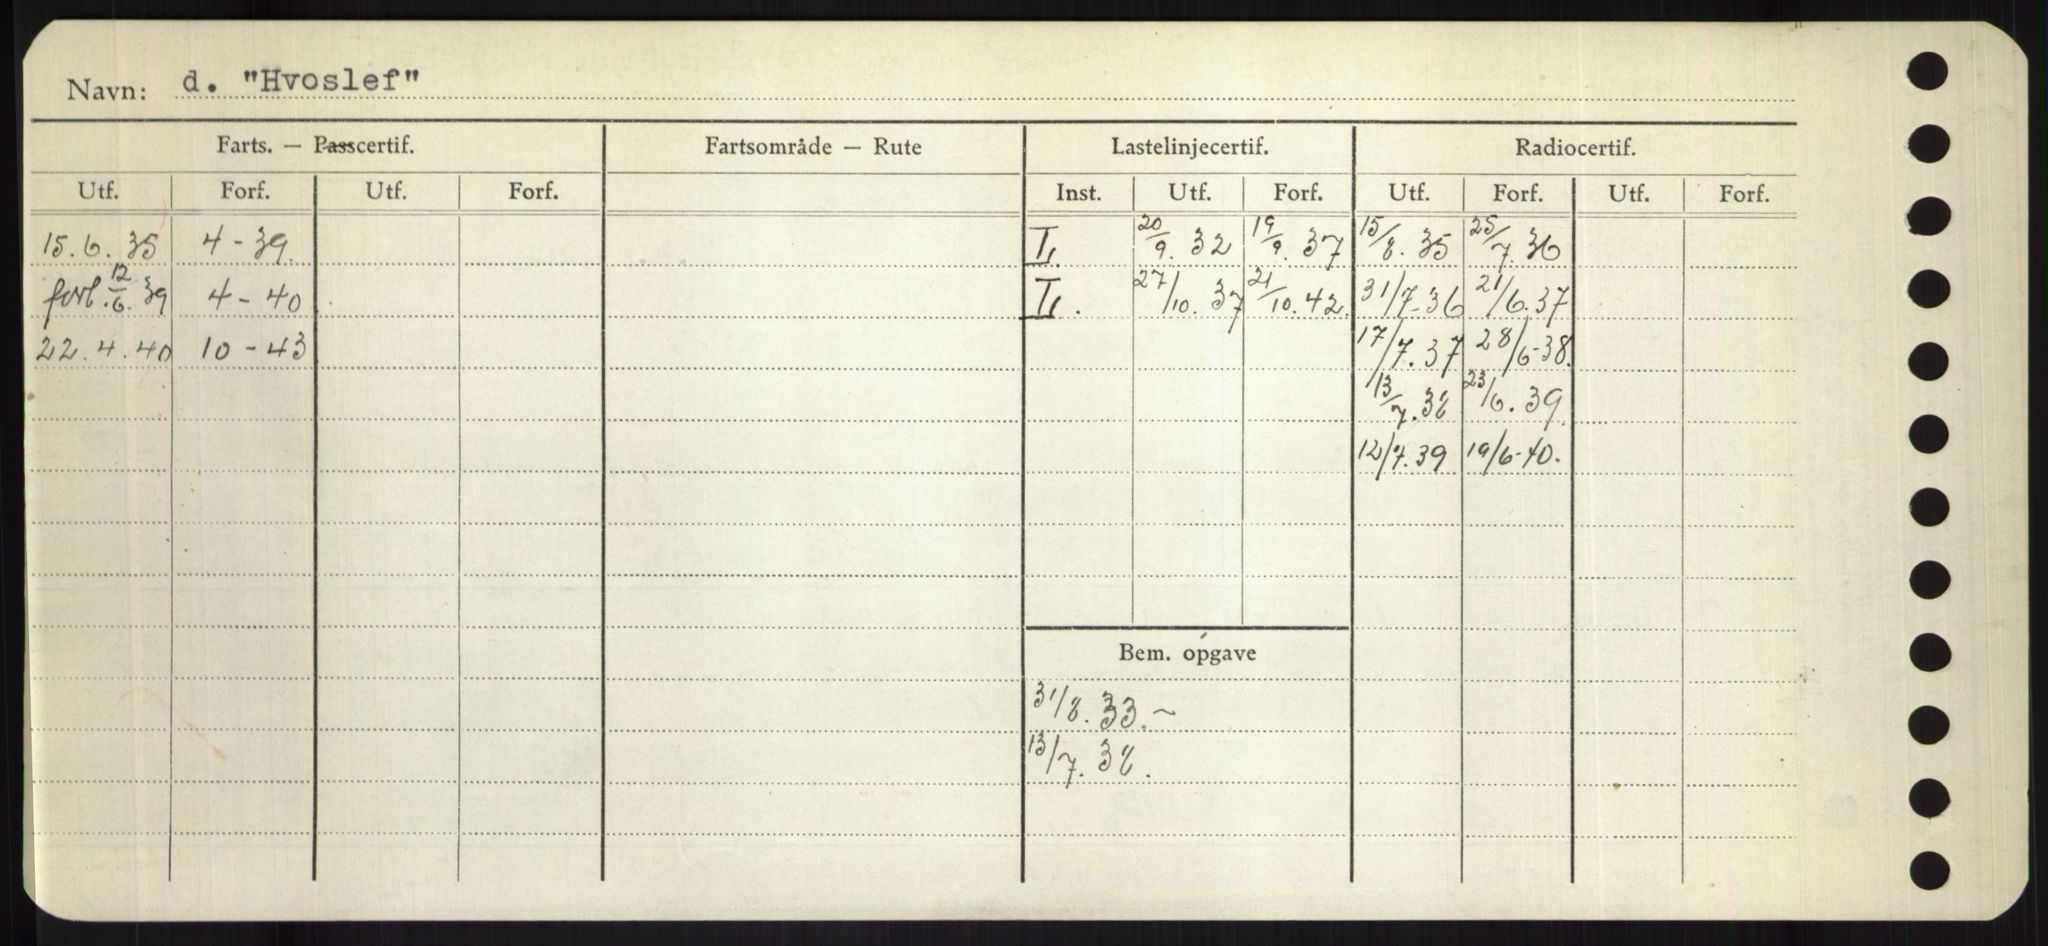 Navn: d. "Hvoslef"
Farts. — Passcertif. Fartsområde — Rute Lastelinjecertif. Radiocertif.
Utf. Forf. Utf. Forf. Inst. Utf. Forf. Utf. Forf. Utf. Forf.
15.6.35 4-39. 20/9. 32 19/9. 37 15/8. 35 25/7. 36
forl. 12/6. 39 4-40 27/10. 37 21/10. 42. 31/7-36 21/6.37
22.4.40 10-43 17/7. 37 28/6-38.
13/7. 38 23/6. 39.
12/7.39 19/6-40.
Bem. opgave
31/8. 33.~
13/7. 38.